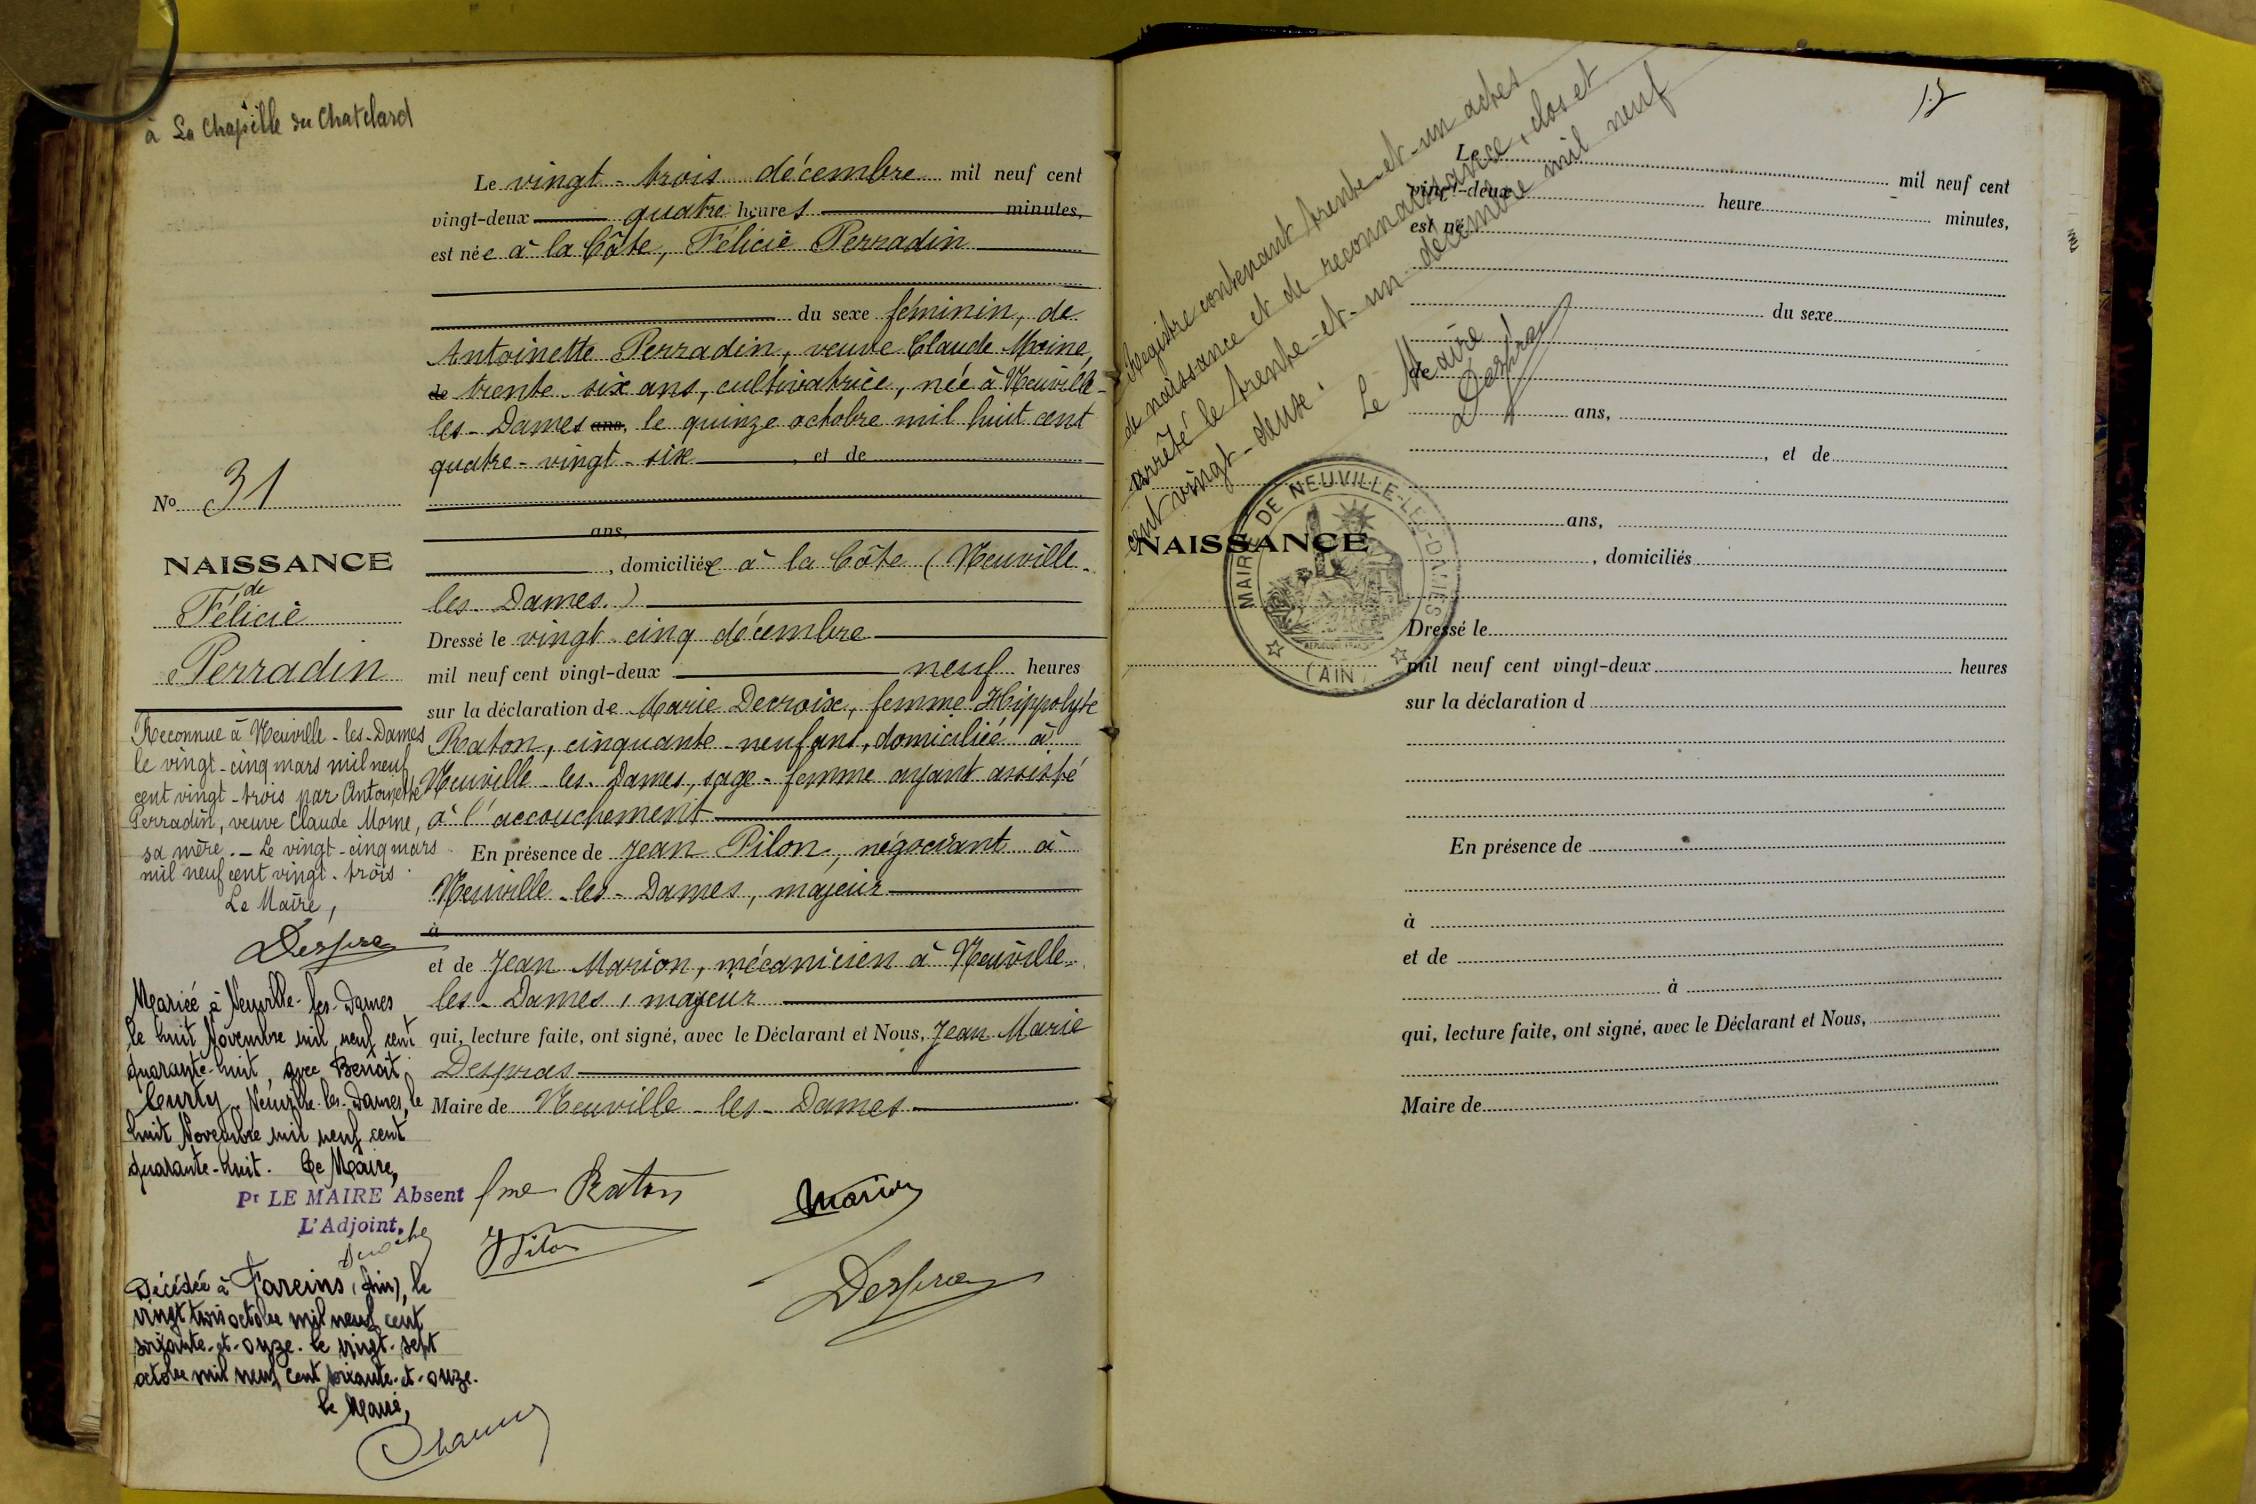 à La Chapelle du Chatelard
Le vingt-trois décembre mil neuf cent
vingt-deux quatre heures minutes,
est née à la Côte, Félicie Perradin
du sexe féminin, de
Antoinette Perradin, veuve Claude Moine,
de trente-six ans, cultivatrice, née à Neuville-
les-Dames ans, le quinze octobre mil huit cent
quatre-vingt-six , et de
ans,
, domiciliée à la Côte (Neuville-
les-Dames.)
Dressé le vingt-cinq décembre
mil neuf cent vingt-deux neuf heures
sur la déclaration de Marie Decroix, femme Hippolyte
Raton, cinquante-neuf ans, domiciliée à
Neuville-les-Dames, sage-femme ayant assisté
à l'accouchement
En présence de Jean Pilon, négociant à
Neuville-les-Dames, majeur
à
et de Jean Marion, mécanicien à Neuville-
les-Dames, majeur
qui, lecture faite, ont signé, avec le Déclarant et Nous, Jean Marie
Despras
Maire de Neuville-les-Dames
fme Raton
Marion
J Pilon
Despras
No 31
NAISSANCE
de
Félicie
Perradin
Reconnue à Neuville-les-Dames
le vingt-cinq mars mil neuf
cent vingt-trois par Antoinette
Perradin, veuve Claude Moine,
sa mère. - Le vingt-cinq mars
mil neuf cent vingt-trois.
Le Maire,
Despras
Mariée à Neuville-les-Dames
le huit Novembre mil neuf cent
quarante-huit, avec Benoit
Curty. Neuville-les-Dames, le
huit Novembre mil neuf cent
quarante-huit. Le Maire,
Pr LE MAIRE Absent
L'Adjoint,
Décédée à Fareins (Ain), le
vingt trois octobre mil neuf cent
soixante-et-onze. Le vingt-sept
octobre mil neuf cent soixante-et-onze.
Le Maire,
Registre contenant trente-et-un actes
de naissance et de reconnaissance, clos et
arrêté le trente-et-un décembre mil neuf
cent vingt-deux.
Le Maire
Despras
NAISSANCE
MAIRIE DE NEUVILLE-LES-DAMES
RÉPUBLIQUE FRANÇAISE
(AIN)
Le mil neuf cent
vingt-deux heure minutes,
est né
du sexe
de
ans,
, et de
ans,
, domiciliés
Dressé le
mil neuf cent vingt-deux heures
sur la déclaration d
En présence de
à
et de
à
qui, lecture faite, ont signé, avec le Déclarant et Nous,
Maire de